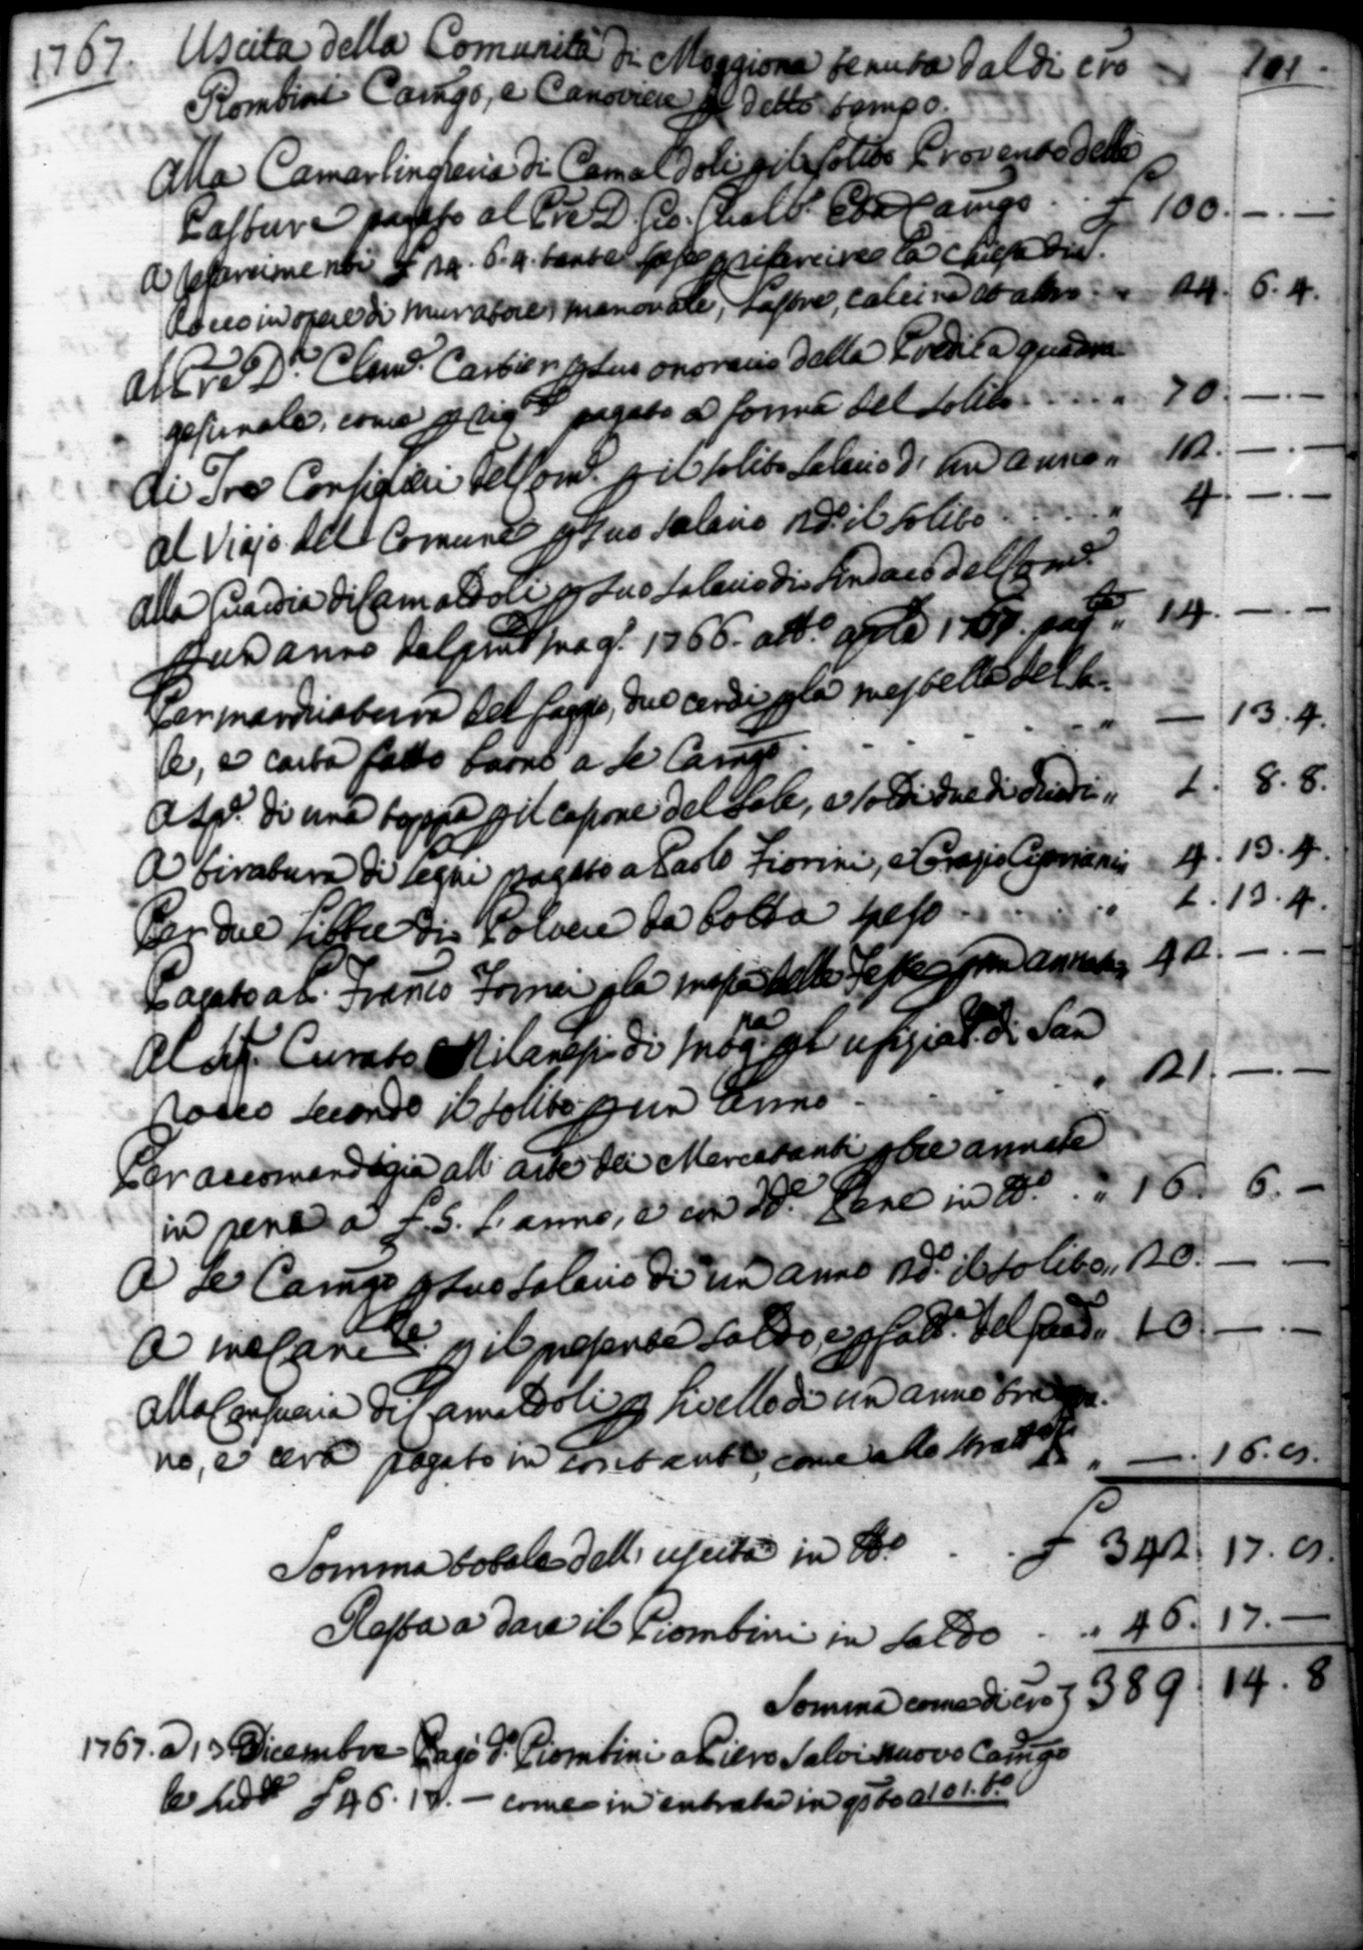 1767. Uscita della Comunità di Moggiona tenuta dal di cro 101.
Piombini Camgo, e Canoviere p detto tempo.
Alla Camarlingheria di Camaldoli p il solito Provento delle
Pasture pagato al Pre D. Gio. Gualb. Camgo £ 100. — . —
A £ 24. 6. 4. tante spese p risarcire la Chiesa di S.
Rocco in opere di muratore, manovale, lastre, calcina et altro „ 24. 6. 4.
Al Pre D. Clem. p suo onorario della Predica quadra
gesimale, come p pagato a forma del solito „ 70. — . —
Ai Tre Consiglieri del Com. p il solito salario di un anno „ 12. — . —
Al Viajo del Comune p suo salario sdo. il solito „ 4. — . —
Alla Guardia di Camaldoli p suo salario di Sindaco del Com.
p un anno dal pmo mag. 1766. a tto aple 1767. „ 14. — . —
Per marchiatura del faggio, due cerdi p la mestella del sa-
le, e carta fatto buono a se Camgo „ — 13. 4.
A Spa. di una toppa p il capone del Sale, e soldi due di chiodi „ 1. 8. 8.
A tiratura di legni pagato a Paolo Fiorini, e Orazio Cipriani „ 4. 13. 4.
Per due Libbre di Polvere da botta speso „ 1. 13. 4.
Pagato a P. Franco Fornai p la messa delle Feste p un annata „ 42. — . —
Al Sig. Curato Milanesi di Mogna p l' ufiziat. di San
Rocco secondo il solito p un anno „ 21. — . —
Per accomandigia all' arte dei Mercatanti p tre annate
in pena a £. 5. l' anno, e con dde. Pene in tto. „ 16. 6. —
A se Camgo p suo salario di un anno sdo. il solito „ 20. — . —
A me Canre. p il presente saldo, e p „ 10. — . —
Alla Canfueria di Camaldoli p Livello di un anno tra gra-
no, e cera pagato in contanti, come allo stratto „ — . 16. 9.
Somma totale dell' uscita in tto. £ 342. 17. 9.
Resta a dare il Piombini in saldo „ 46. 17. —
Somma come di cro 389. 14. 8
1767. a 13 Dicembre Pagò do. Piombini a Piero Salvi nuovo Camgo
le sudde £ 46. 17. — come in entrata in qsto a 101. to